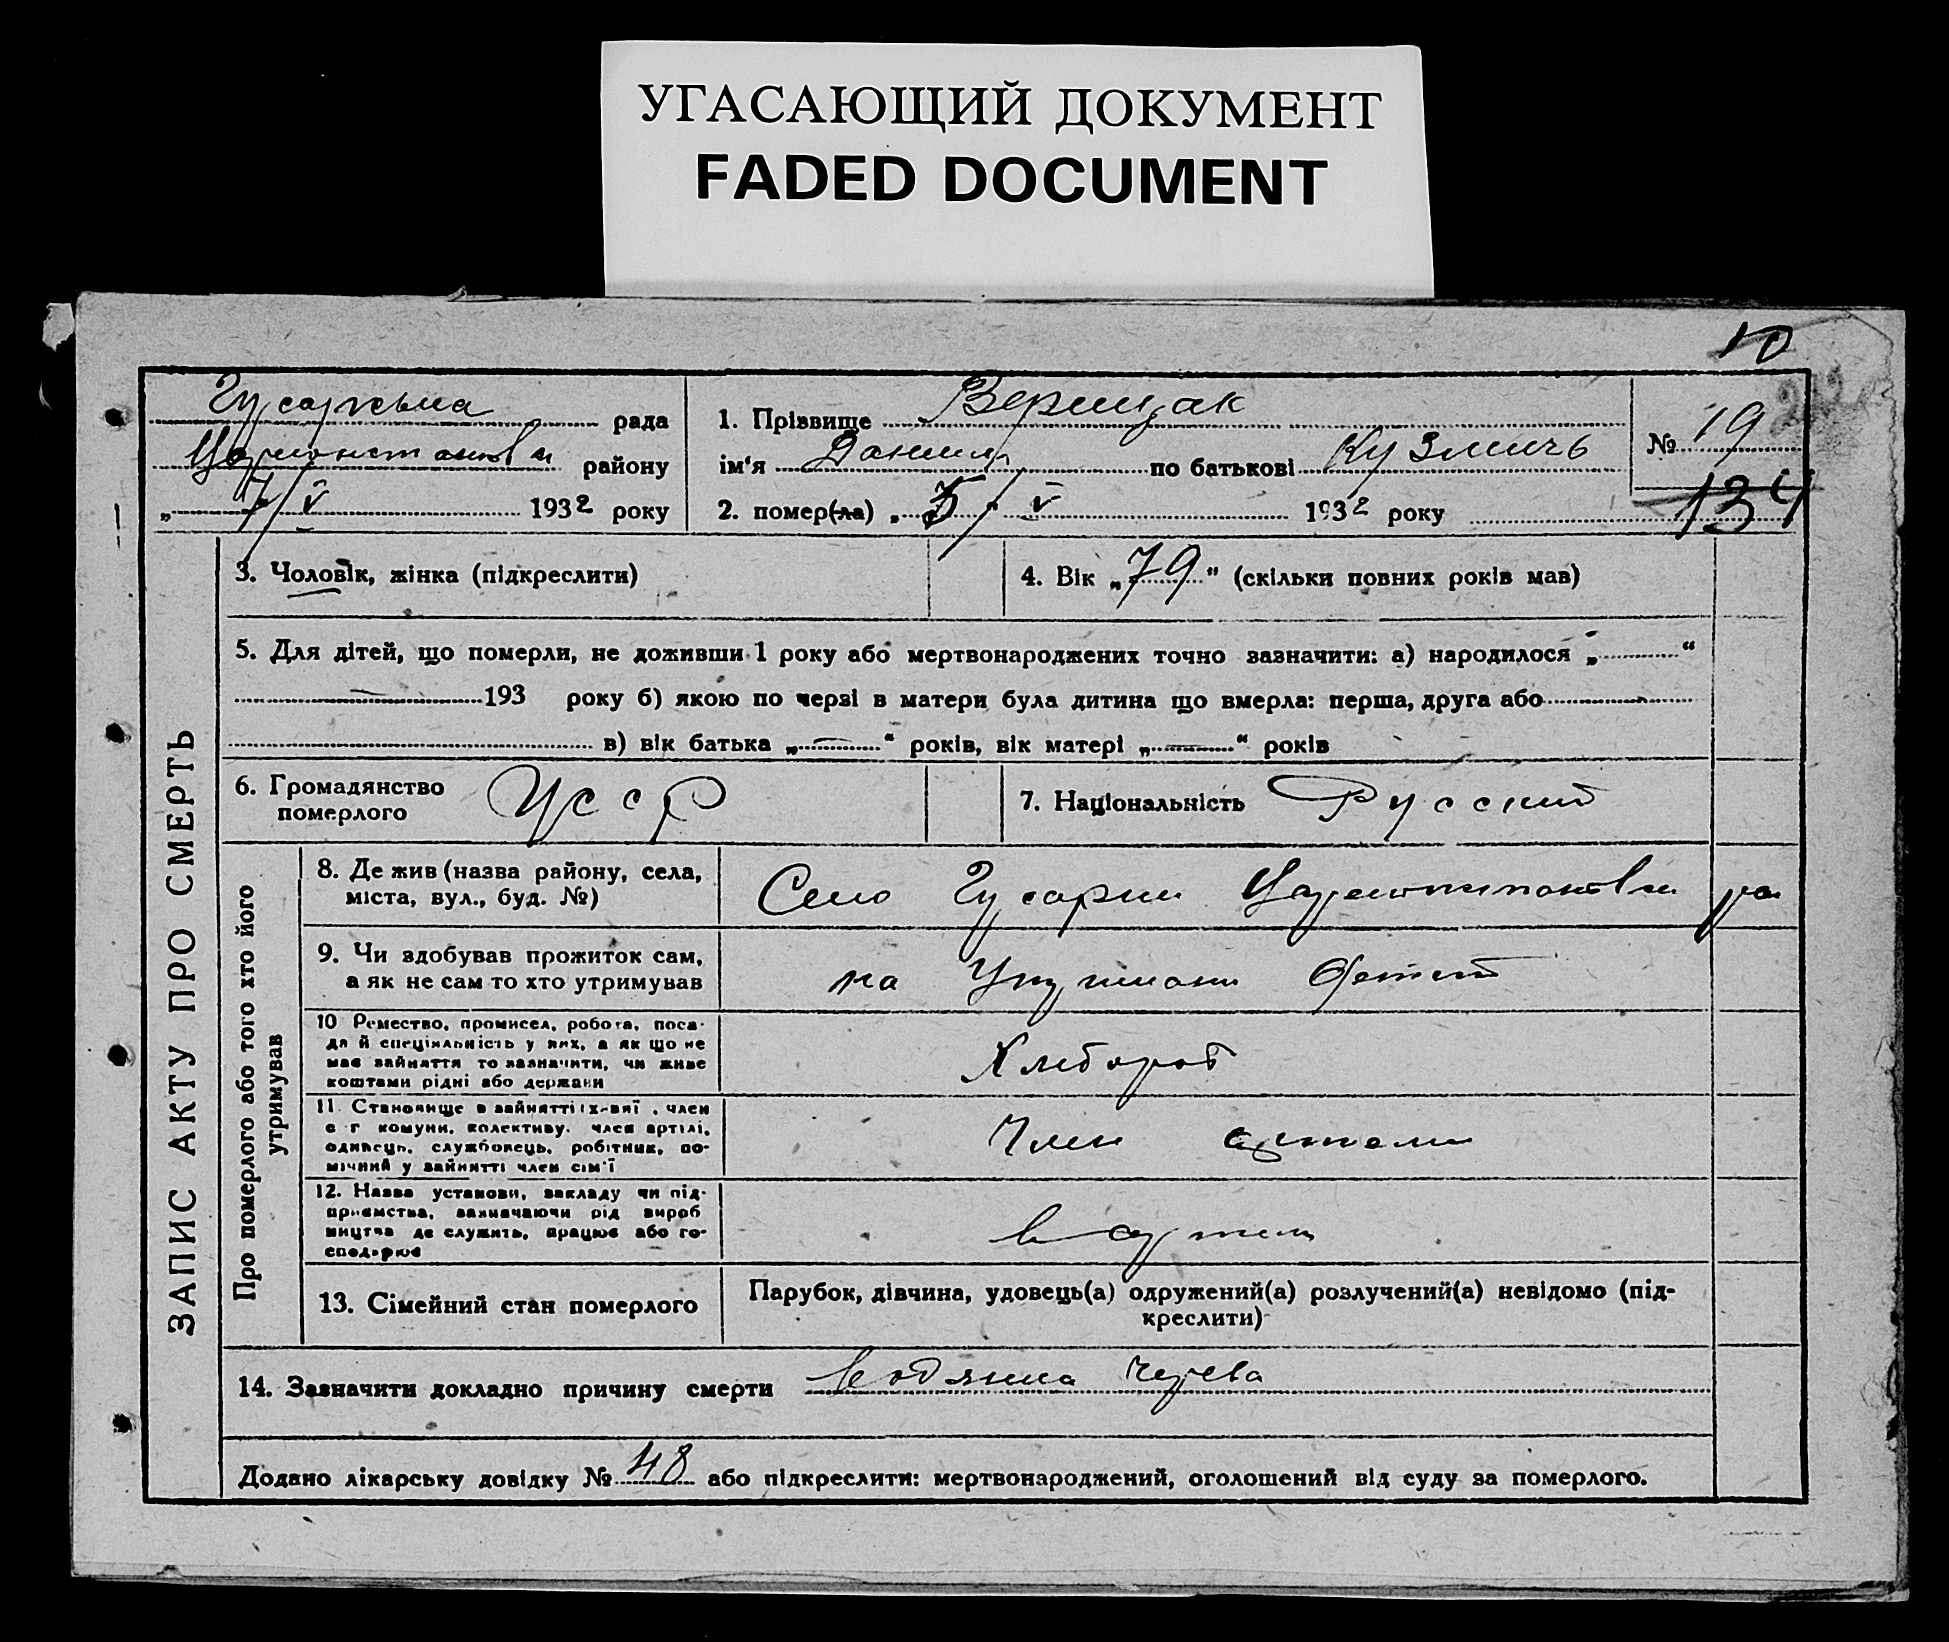 УГАСАЮЩИЙ ДОКУМЕНТ
FADED DOCUMENT
10
Гусарська рада
району
„ 7/V 1932 року
1. Прізвище Верещак
ім'я Данило по батькові Кузмичь
2. помер(ла) „ 5/V 1932 року
№ 19
134
ЗАПИС АКТУ ПРО СМЕРТЬ
3. Чоловік, жінка (підкреслити)
4. Вік „79“ (скільки повних років мав)
5. Для дітей, що померли, не доживши 1 року або мертвонароджених точно зазначити: а) народилося „ “
193 року б) якою по черзі в матери була дитина що вмерла: перша, друга або
в) вік батька „ “ років, вік матері „ “ років
6. Громадянство
померлого
УССР
7. Національність Русский
Про померлого або того хто його
утримував
8. Де жив (назва району, села,
міста, вул., буд. №)
Село Гусарки
9. Чи здобував прожиток сам,
а як не сам то хто утримував
на детей
10 Ремество, промисел, робота, поса-
да й спеціяльність у них, а як що не
має зайняття то зазначити, чи живе
коштами рідні або держави
Хлебороб
11. Становище в зайнятті член
с г комуни, колективу, член артілі,
одинець, службовець, робітник, по-
мічний у зайнятті член сім'ї
Член артели
12. Назва установи, закладу чи під-
приємства, зазначаючи рід вироб
ництва де служить, працює або го-
сподарює
в артели
13. Сімейний стан померлого
Парубок, дівчина, удовець(а) одружений(а) розлучений(а) невідомо (під-
креслити)
14. Зазначити докладно причину смерти Водянка чрева
Додано лікарську довідку № 48 або підкреслити: мертвонароджений, оголошений від суду за померлого.